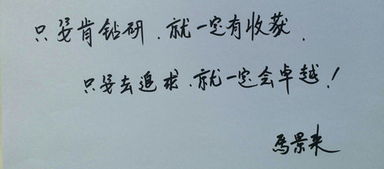 只要肯钻研，就一定有收获，
只要去追求，就一定会卓越！
马景来